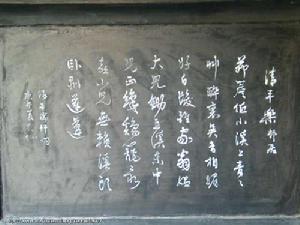 清平樂 村居
茅簷低小溪上青青
草醉裏吳音相媚
好白髮誰家翁媼
大兒鋤豆溪東中
兒正織雞籠最
喜小兒無賴溪頭
卧剥蓮蓬